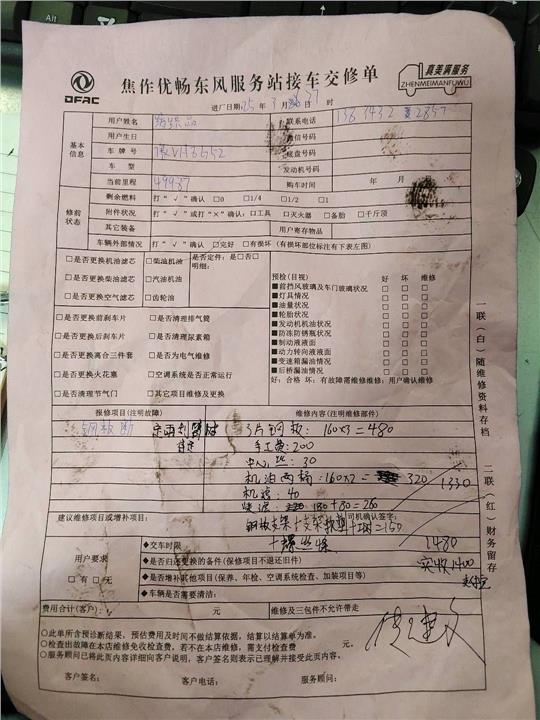 Alt
焦作优畅东风服务站接车交修单
DFAC
真美满服务
ZHENMEIMANFUWU
进厂日期:25年3月27日 时
基本信息
用户姓名
联系电话
用户生日
微信号码
车牌号
底盘号码
车型
发动机号码
当前里程 49987
购车时间 年 月
修前状态
剩余燃料 打“√”确认 □0 □1/4 □1/2 □1
附件状况 打“√”或打“×”确认:□工具 □灭火器 □备胎 □千斤顶
其它装备
用户寄存物品
车辆外部情况 打“√”确认 □完好 □有损坏(有损坏部位标注有下表左图)
□是否更换机油滤芯 □柴油机油 是否定件:是□否□
□是否更换柴油滤芯 □汽油机油 明细:
□是否更换空气滤芯 □齿轮油
□是否更换前刹车片 □是否清理排气筒
□是否更换后刹车片 □是否清理尿素箱
□是否更换离合三件套 □是否为电气维修
□是否更换火花塞 □空调系统是否正常运行
□是否清理节气门 □其它项目维修及更换
预检(目视) 好 坏 维修
■前挡风玻璃及车门玻璃状况 □ □ □
■灯具情况 □ □ □
■油量状况 □ □ □
■轮胎状况 □ □ □
■发动机机油状况 □ □ □
■防冻防锈瓶状况 □ □ □
■制动液液面 □ □ □
■动力转向液液面 □ □ □
■变速箱漏油情况 □ □ □
■后桥漏油情况 □ □ □
好:合格 坏:有故障需维修维修:用户确认维修
报修项目(注明故障)
维修内容(注明维修部件)
钢板断
3片钢板:160×3=480
手工费:200
中心丝:30
机油两桶:160×2=320
机滤:40
180+80=260
1330
建议维修项目或增项目:
司机确认签字:
=150
1480
实收1400
用户要求
□有 □无
◆交车时限
◆是否归还更换的备件(保修项目不退还旧件)
◆是否增加其他项目(保养、年检、空调系统检查、加装项目等)
◆车辆是否需要清洁:
费用合计(客户): 元
维修及三包件不允许带走
○此单所含预诊断结果,预估费用及时间不做结算依据,结算以结算单为准。
○检查出故障在本店维修免收检查费,若不在本店维修,需支付检查费 元。
○服务顾问已将此页内容详细向客户说明,客户签名则表示已理解并接受此页内容。
客户签名: 客户电话: 服务顾问:
一联(白)随维修资料存档
二联(红)财务留存